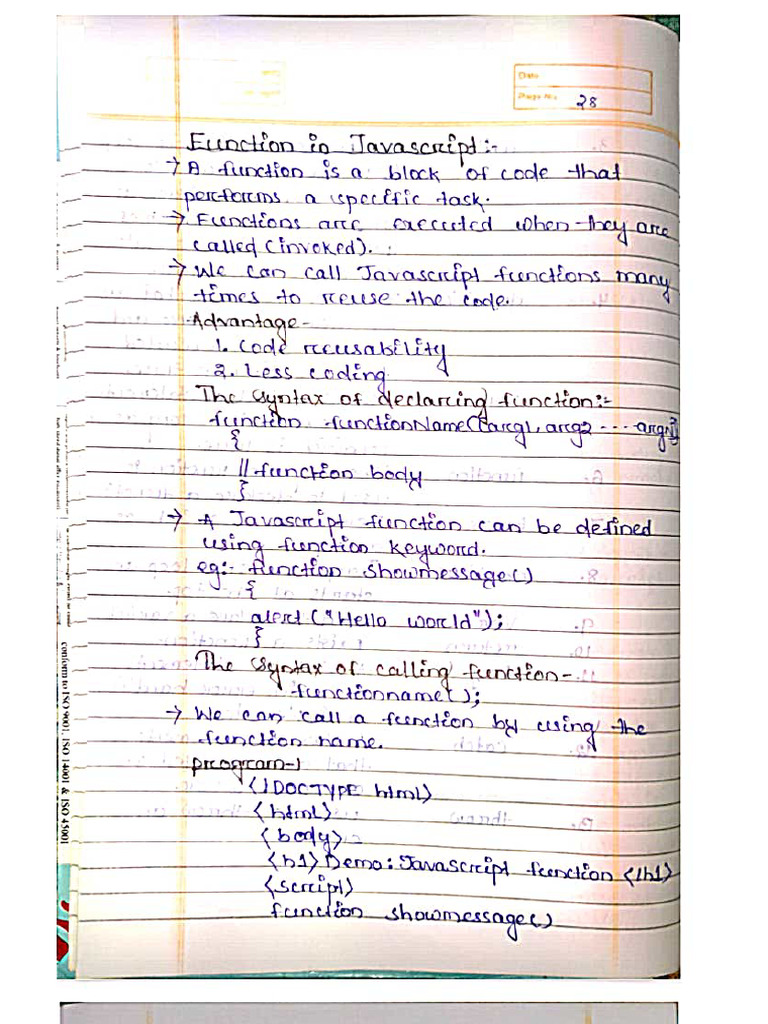 Date
Page No. 28
Function in Javascript:-
→ A function is a block of code that
performs a specific task.
→ Functions are executed when they are
called (invoked).
→ We can call Javascript functions many
times to reuse the code.
Advantage-
1. Code reusability
2. Less coding
The syntax of declaring function:-
function functionName([arg1, arg2 --- argN])
{
// function body
}
→ A Javascript function can be defined
using function keyword.
eg:- function showmessage()
{
alert ("Hello world");
}
The syntax of calling function-
functionname();
→ We can call a function by using the
function name.
program-1
<!DOCTYPE html>
<html>
<body>
<h1> Demo: Javascript function </h1>
<script>
function showmessage()
conform to ISO 9001, ISO 14001 & ISO 45001